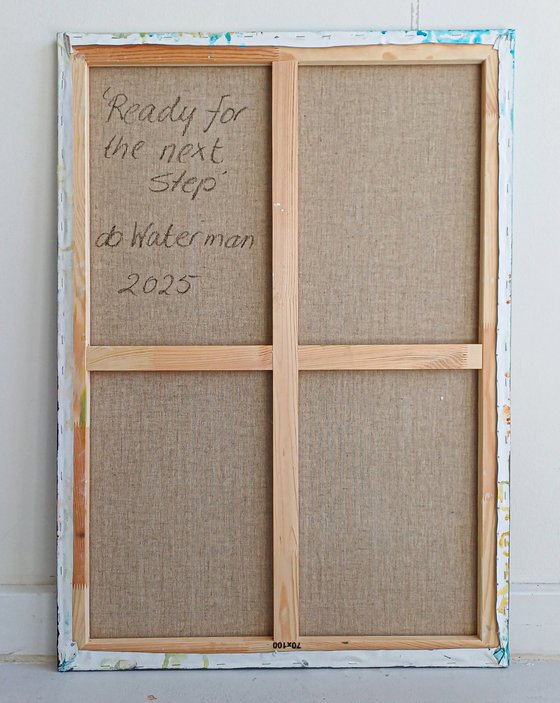 'Ready for
the next
Step'
do Waterman
2025
70x100